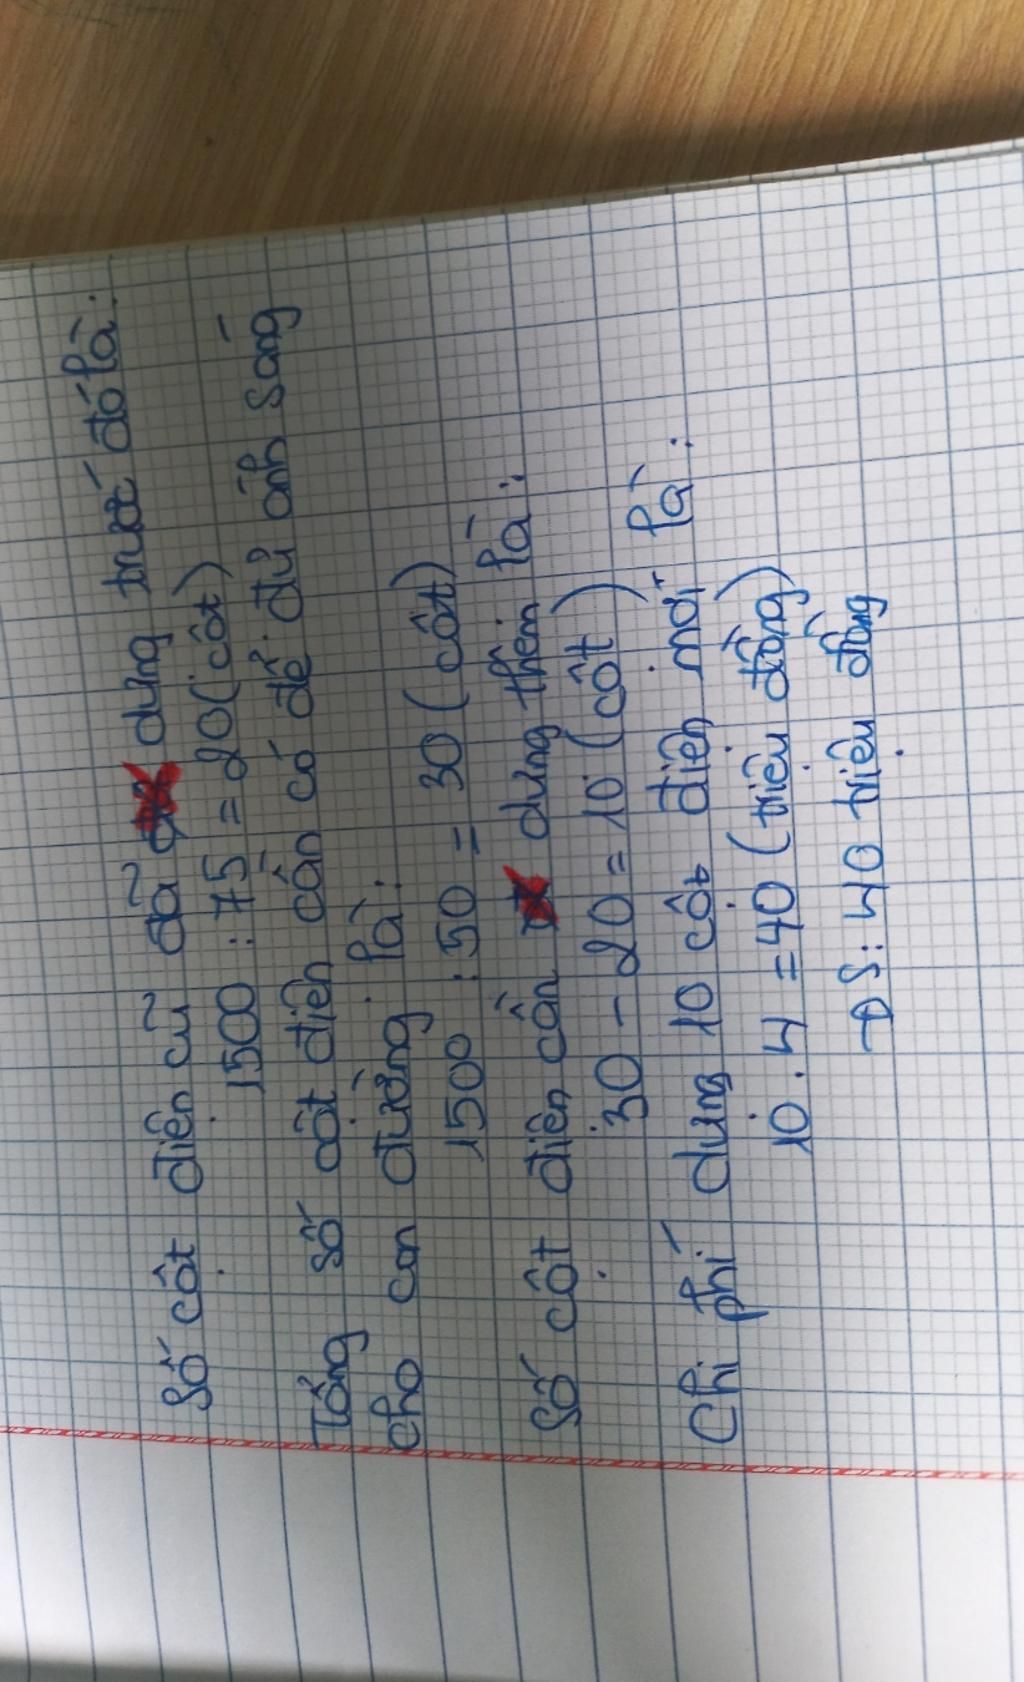 Số cột điện cũ đã dựng trước đó là:
1500 : 75 = 20 (cột)
Tổng số cột điện cần có để đủ ánh sáng
cho con đường là:
1500 : 50 = 30 (cột)
Số cột điện cần dựng thêm là:
30 - 20 = 10 (cột)
Chi phí dựng 10 cột điện mới là:
10 . 4 = 40 (triệu đồng)
ĐS: 40 triệu đồng